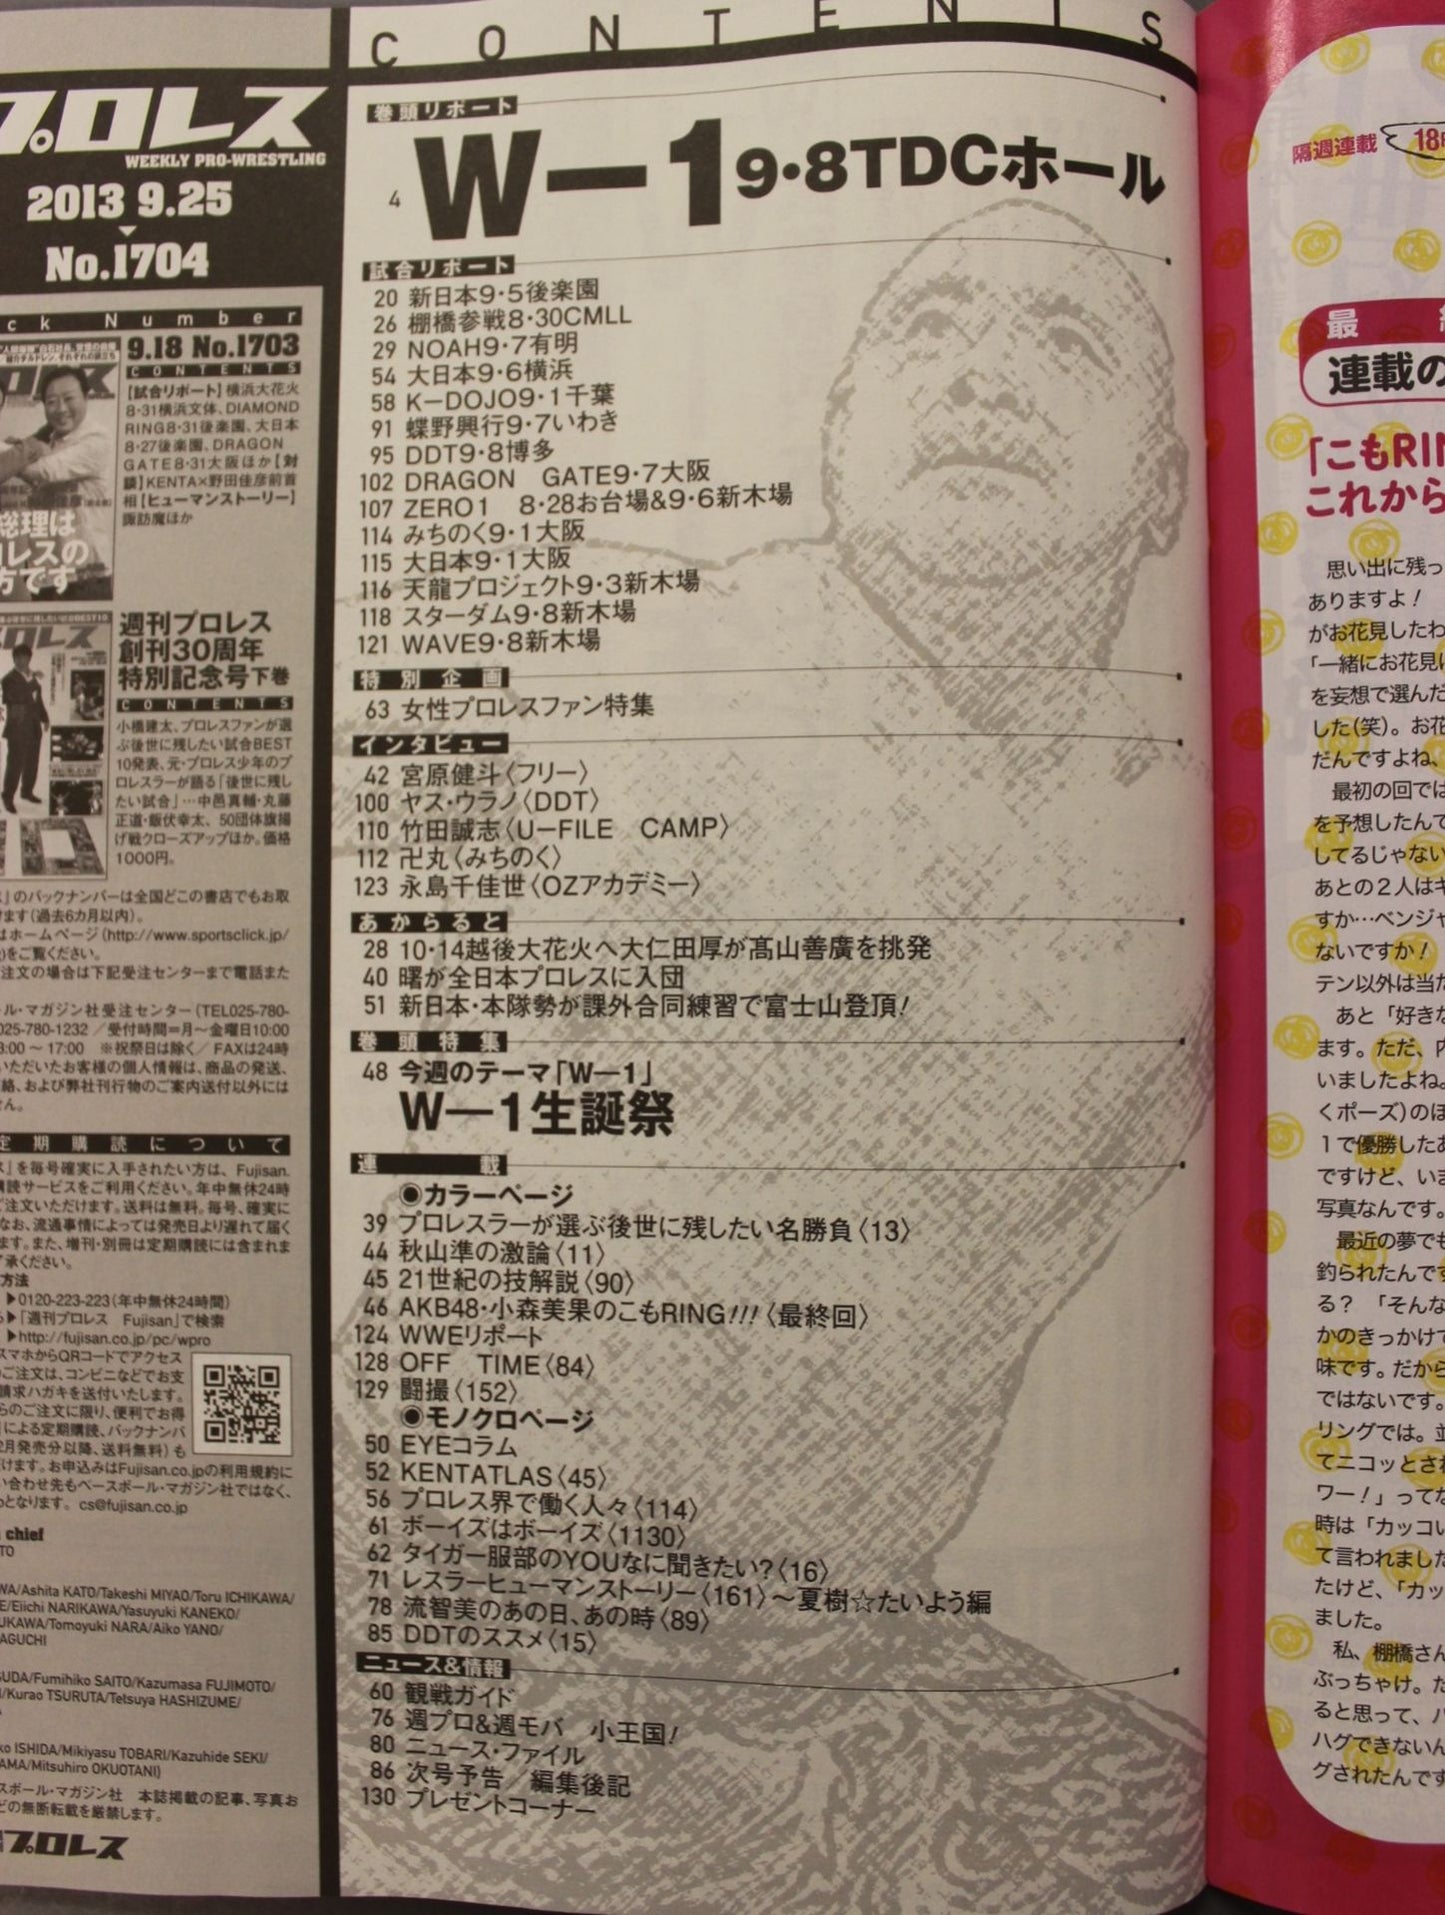 CONTENTS
プロレス
WEEKLY PRO-WRESTLING
2013 9.25
No.1704
ck Number
9.18 No.1703
CONTENTS
【試合リポート】横浜大花火
8・31横浜文体、DIAMOND
RING8・31後楽園、大日本
8・27後楽園、DRAGON
GATE8・31大阪ほか【対
談】KENTA×野田佳彦前首
相【ヒューマンストーリー】
諏訪魔ほか
総理は
レスの
方です
週刊プロレス
創刊30周年
特別記念号下巻
CONTENTS
小橋建太、プロレスファンが選
ぶ後世に残したい試合BEST
10発表、元・プロレス少年のプ
ロレスラーが語る「後世に残し
たい試合」…中邑真輔・丸藤
正道・飯伏幸太、50団体旗揚
げ戦クローズアップほか。価格
1000円。
」のバックナンバーは全国どこの書店でもお取
けます(過去6カ月以内)。
はホームページ(http://www.sportsclick.jp/
)をご覧ください。
注文の場合は下記受注センターまで電話また
ール・マガジン社受注センター(TEL025-780-
025-780-1232/受付時間=月~金曜日10:00
3:00~17:00 ※祝祭日は除く/FAXは24時
いただいたお客様の個人情報は、商品の発送、
絡、および弊社刊行物のご案内送付以外には
せん。
定期購読について
」を毎号確実に入手されたい方は、Fujisan.
購読サービスをご利用ください。年中無休24時
ご注文いただけます。送料は無料。毎号、確実に
なお、流通事情によっては発売日より遅れて届く
ます。また、増刊・別冊は定期購読には含まれま
了承ください。
方法
▶0120-223-223(年中無休24時間)
▶「週刊プロレス Fujisan」で検索
▶http://fujisan.co.jp/pc/wpro
スマホからQRコードでアクセス
ご注文は、コンビニなどでお支
請求ハガキを送付いたします。
らのご注文に限り、便利でお得
による定期購読、バックナンバ
2月発売分以降、送料無料)も
けます。お申込みはFujisan.co.jpの利用規約に
い合わせ先もベースボール・マガジン社ではなく、
となります。cs@fujisan.co.jp
chief
TO
WA/Ashita KATO/Takeshi MIYAO/Toru ICHIKAWA/
E/Eiichi NARIKAWA/Yasuyuki KANEKO/
UKAWA/Tomoyuki NARA/Aiko YANO/
AGUCHI
SUDA/Fumihiko SAITO/Kazumasa FUJIMOTO/
I/Kurao TSURUTA/Tetsuya HASHIZUME/
ko ISHIDA/Mikiyasu TOBARI/Kazuhide SEKI/
AMA/Mitsuhiro OKUOTANI)
スボール・マガジン社 本誌掲載の記事、写真お
どの無断転載を厳禁します。
プロレス
巻頭リポート
4 W-1 9・8TDCホール
試合リポート
20 新日本9・5後楽園
26 棚橋参戦8・30CMLL
29 NOAH9・7有明
54 大日本9・6横浜
58 K-DOJO9・1千葉
91 蝶野興行9・7いわき
95 DDT9・8博多
102 DRAGON GATE9・7大阪
107 ZERO1 8・28お台場&9・6新木場
114 みちのく9・1大阪
115 大日本9・1大阪
116 天龍プロジェクト9・3新木場
118 スターダム9・8新木場
121 WAVE9・8新木場
特別企画
63 女性プロレスファン特集
インタビュー
42 宮原健斗〈フリー〉
100 ヤス・ウラノ〈DDT〉
110 竹田誠志〈U-FILE CAMP〉
112 卍丸〈みちのく〉
123 永島千佳世〈OZアカデミー〉
あからると
28 10・14越後大花火へ大仁田厚が髙山善廣を挑発
40 曙が全日本プロレスに入団
51 新日本・本隊勢が課外合同練習で富士山登頂!
巻頭特集
48 今週のテーマ「W-1」
W-1生誕祭
連載
◉カラーページ
39 プロレスラーが選ぶ後世に残したい名勝負〈13〉
44 秋山準の激論〈11〉
45 21世紀の技解説〈90〉
46 AKB48・小森美果のこもRING!!!〈最終回〉
124 WWEリポート
128 OFF TIME〈84〉
129 闘撮〈152〉
◉モノクロページ
50 EYEコラム
52 KENTATLAS〈45〉
56 プロレス界で働く人々〈114〉
61 ボーイズはボーイズ〈1130〉
62 タイガー服部のYOUなに聞きたい?〈16〉
71 レスラーヒューマンストーリー〈161〉~夏樹☆たいよう編
78 流智美のあの日、あの時〈89〉
85 DDTのススメ〈15〉
ニュース&情報
60 観戦ガイド
76 週プロ&週モバ 小王国!
80 ニュース・ファイル
86 次号予告/編集後記
130 プレゼントコーナー
隔週連載 18
最
連載の
「こもRIN
これから
思い出に残っ
ありますよ!
がお花見したわ
「一緒にお花見に
を妄想で選んだ
した(笑)。お花
だんですよね、
最初の回では
を予想したんで
してるじゃない
あとの2人はキ
すか…ベンジャ
ないですか!
テン以外は当た
あと「好きな
ます。ただ、内
いましたよね。
くポーズ)のほ
1で優勝したあ
ですけど、いま
写真なんです。
最近の夢でも
釣られたんです
る? 「そんな
かのきっかけで
味です。だから
ではないです。
リングでは。並
てニコッとされ
ワー!」ってな
時は「カッコい
て言われました
たけど、「カッ
ました。
私、棚橋さん
ぶっちゃけ。た
ると思って、ハ
ハグできないん
グされたんです